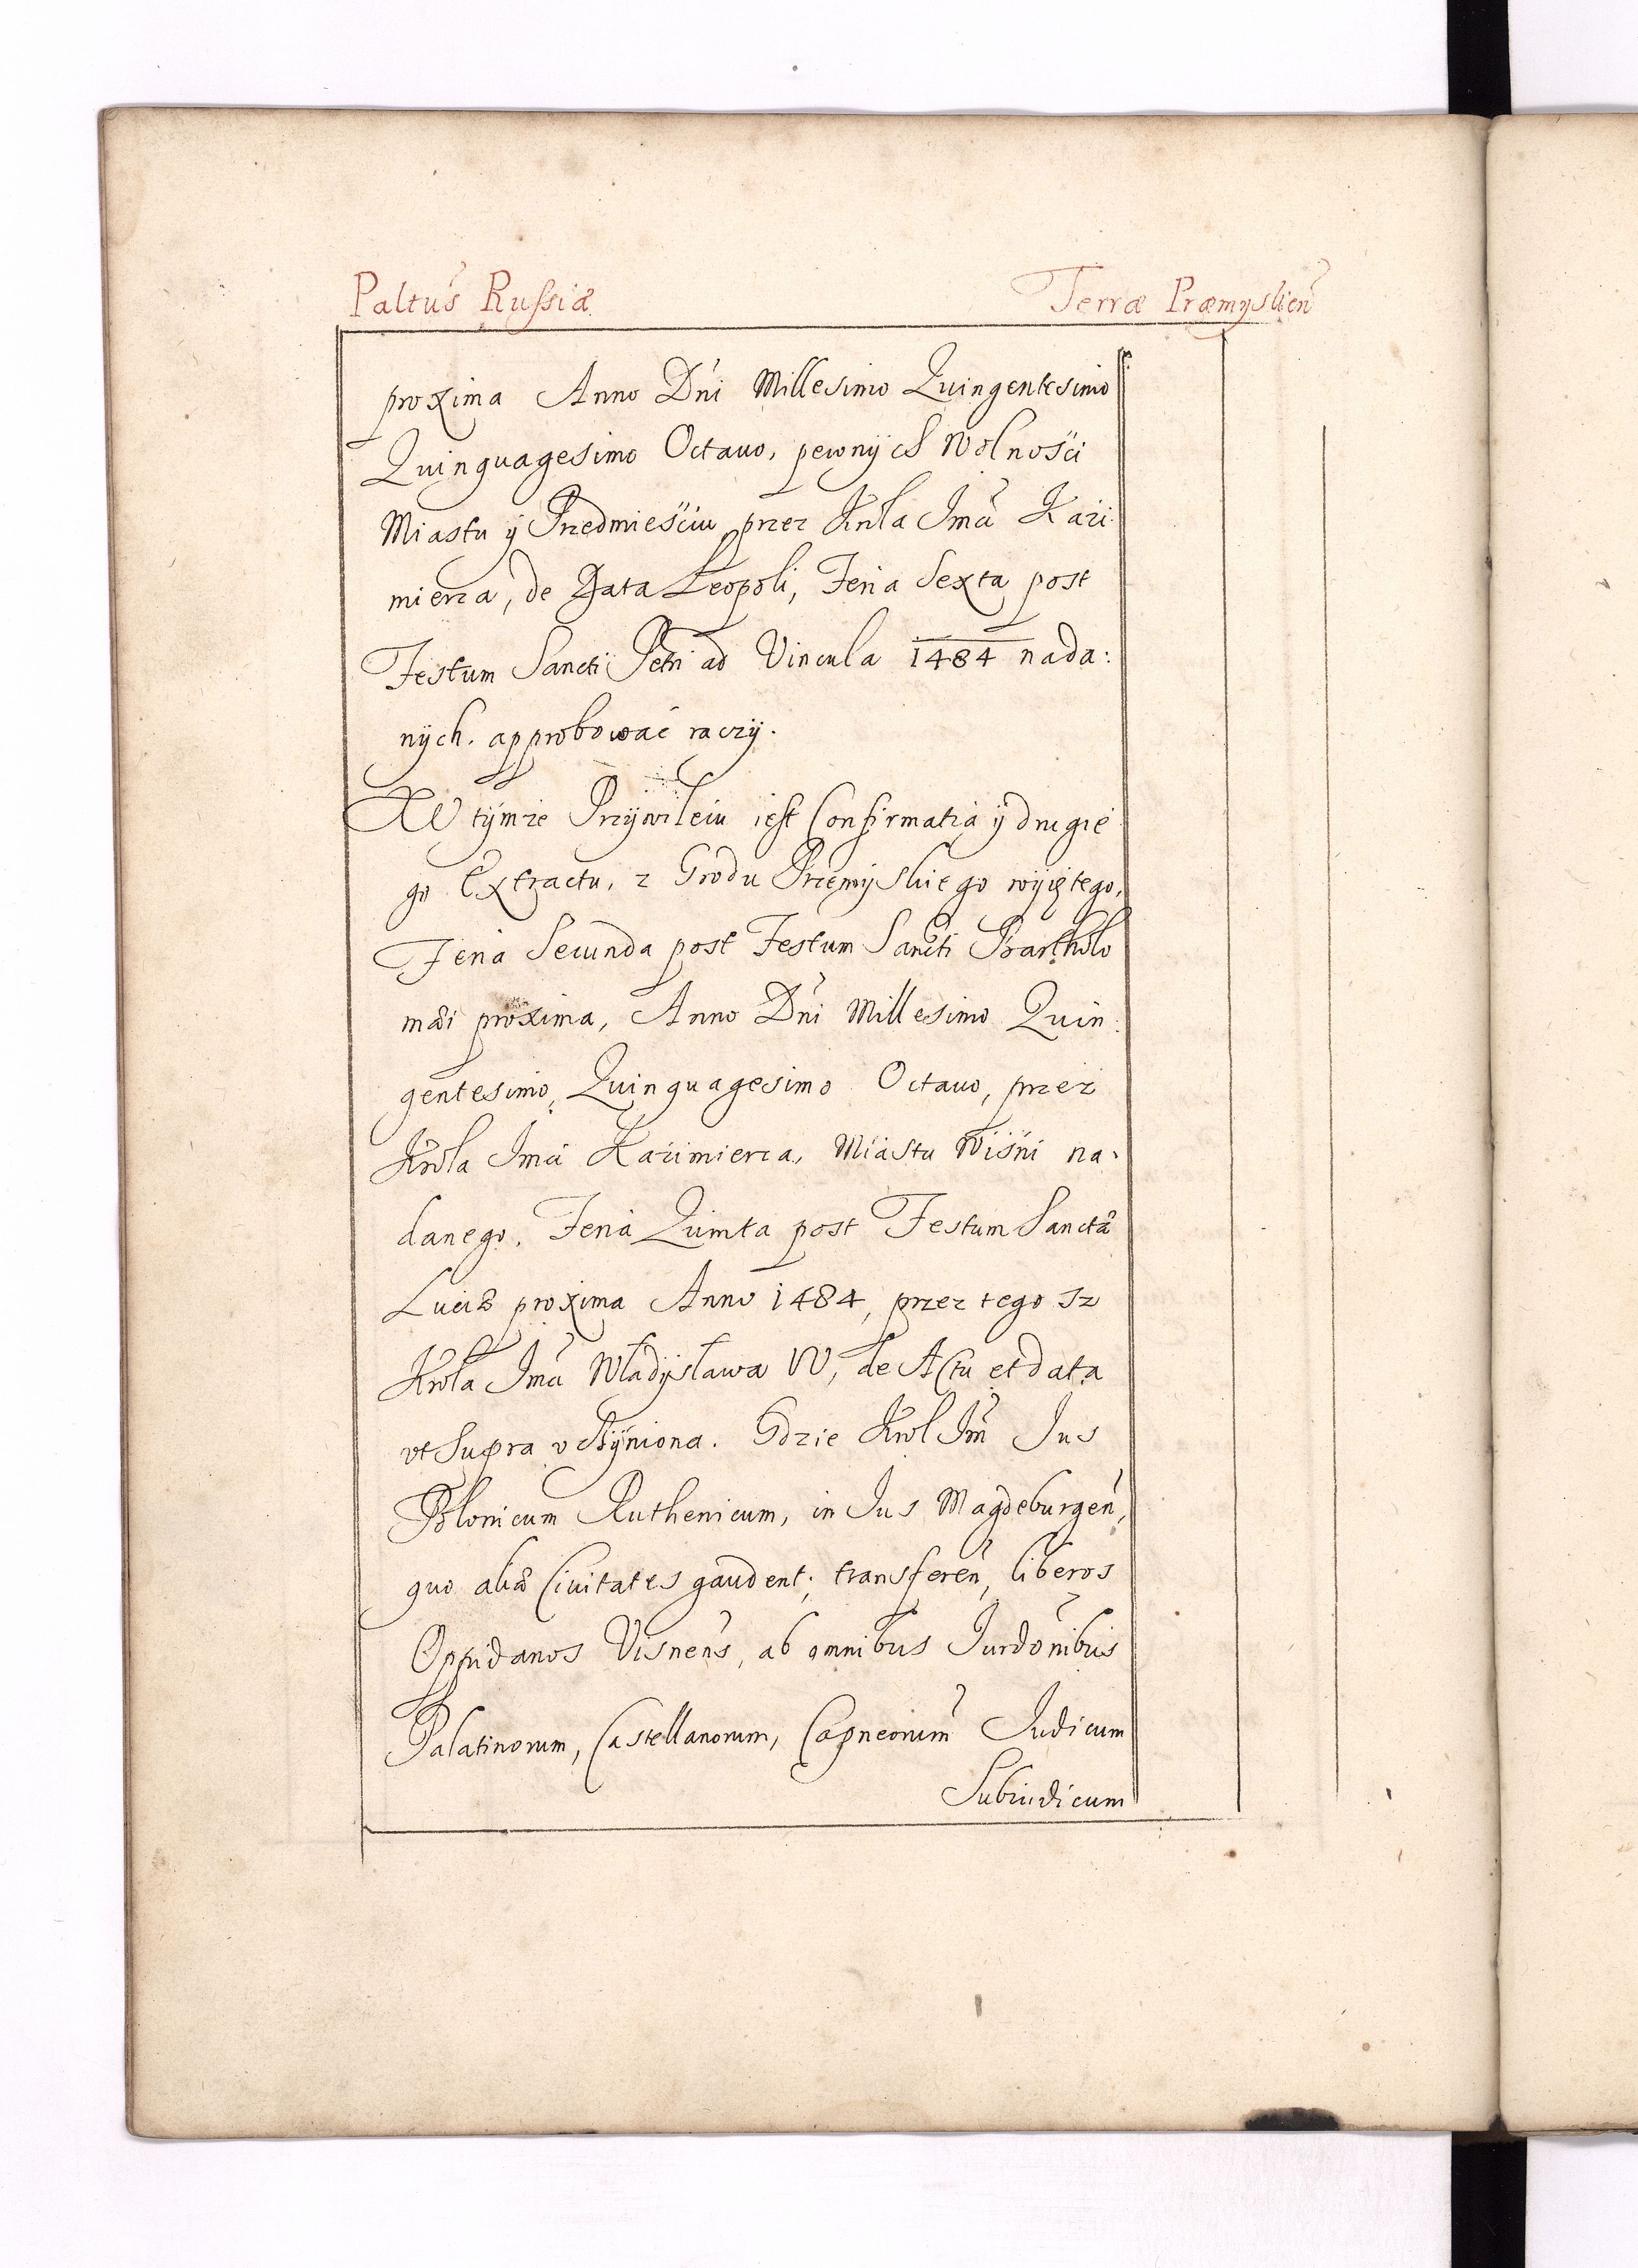 Paltus Russiæ Terræ Præmyslien
proxima Anno Dni Millesimo Quingentesimo
Quinquagesimo Octauo, pewnÿch Wolności
Miastu ÿ Przedmieściu przez Krola Jmci Kazi
mierza, de Data Leopoli, Feria Sexta post
Festum Sancti Petri ad Vincula 1484 nada:
nÿch. approbować raczÿ.
W tÿmże Przÿwileiu iest Confirmatia ÿ drugie
go Extractu, z Grodu PrzemÿSkiego wÿiętego,
Feria Secunda post Festum Sancti Bartholo
mæi proxima, Anno Dni Millesimo Quin:
gentesimo, Quinquagesimo Octauo, przez
Krola Jmci Kazimierza, Miastu Wiśni na:
danego, Feria Quinta post Festum Sanctæ
Luciæ proxima Anno 1484, przez tego sz
Krola Jmci WładÿsławaIV, de Actu et data
vt Supra vczÿniona. Gdzie Krol Jm Jus
Polonicum Ruthenicum, in Jus Magdeburgen,
quo aliæ Ciuitates gaudent, transferen, liberos
Oppidanos Visnens, ab omnibus Jurdonibus
Palatinorum, Castellanorum, Capneorum Judicum
Subiudicum